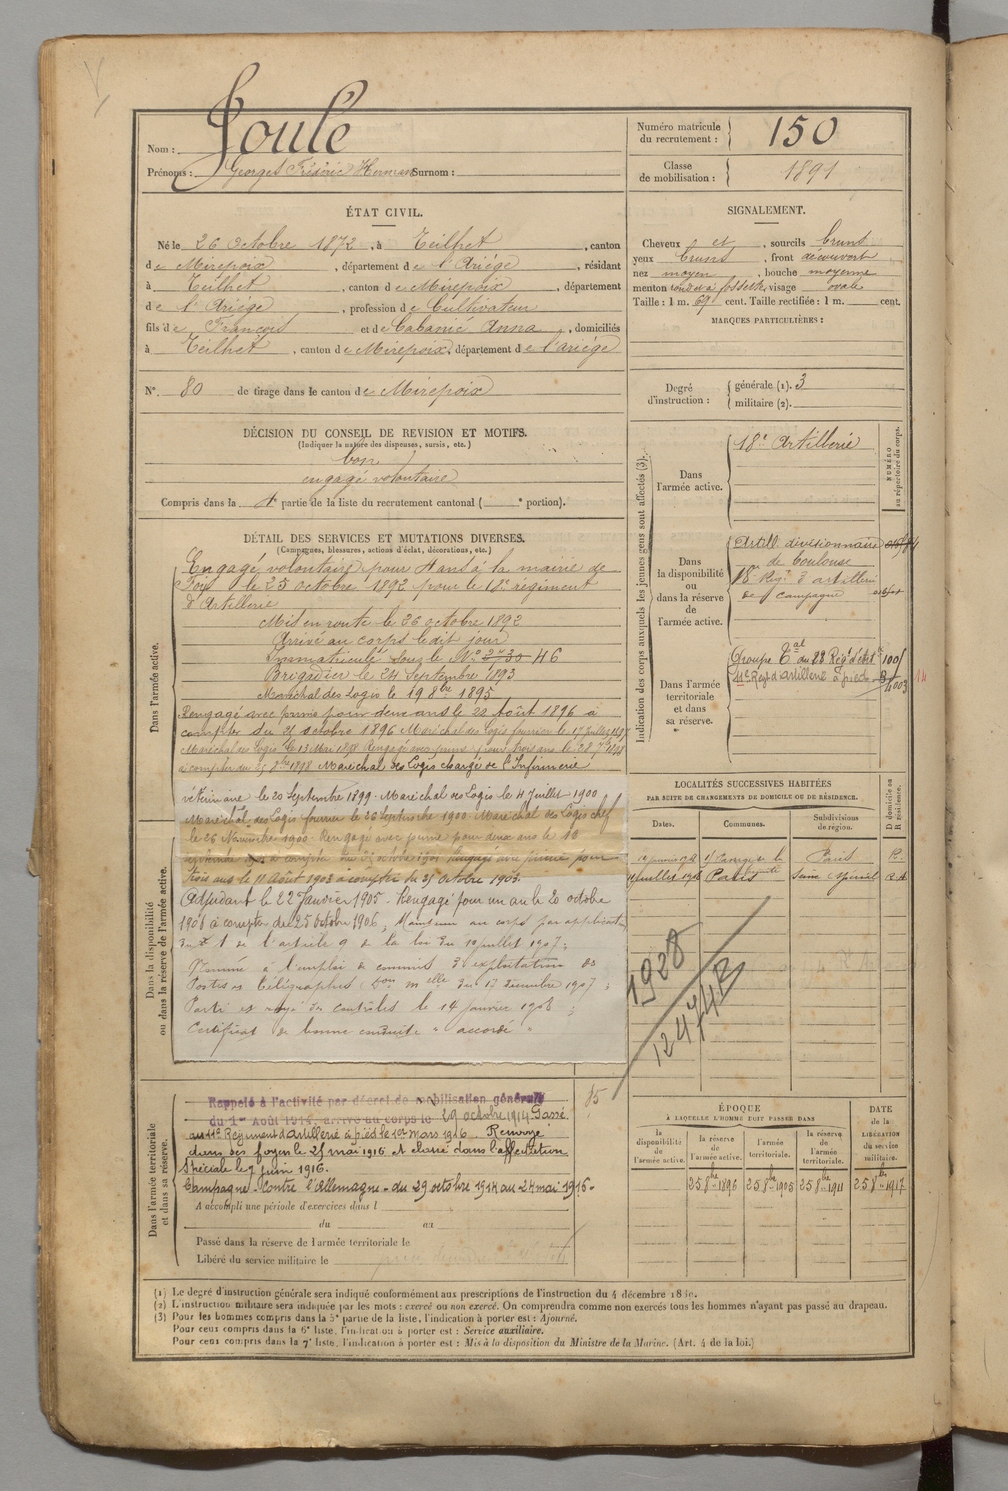 Nom : Joulé
Prénoms : Georges Frédéric Herman Surnom :
Numéro matricule du recrutement : 150
Classe de mobilisation : 1891
ÉTAT CIVIL.
Né le 26 Octobre 1872, à Teilhet, canton
de Mirepoix, département de l'Ariège, résidant
à Teilhet, canton de Mirepoix, département
de l'Ariège, profession de Cultivateur
fils de François et de Cabanié Anna, domiciliés
à Teilhet, canton de Mirepoix, département de l'ariège
N° 80 de tirage dans le canton de Mirepoix
DÉCISION DU CONSEIL DE REVISION ET MOTIFS.
(Indiquer la nature des dispenses, sursis, etc.)
bon
engagé volontaire
Compris dans la partie de la liste du recrutement cantonal ( portion).
SIGNALEMENT.
Cheveux et, sourcils bruns
yeux bruns, front découvert
nez moyen, bouche moyenne
menton rond et à fossette, visage ovale
Taille : 1 m. 69 cent. Taille rectifiée : 1 m. cent.
MARQUES PARTICULIÈRES :
Degré d'instruction : générale (1). 3
militaire (2).
Indication des corps auxquels les jeunes gens sont affectés (3).
NUMÉRO au répertoire du corps.
Dans l'armée active. 18e Artillerie
Dans la disponibilité ou dans la réserve de l'armée active.
Artill. divisionnaire
de Toulouse
18e Régt d'artillerie
de campagne
Dans l'armée territoriale et dans sa réserve.
Groupe Tal du 23 Régt d'art 1001
11e Régt d'artillerie à pied
DÉTAIL DES SERVICES ET MUTATIONS DIVERSES.
(Campagnes, blessures, actions d'éclat, décorations, etc.)
Dans l'armée active.
Engagé volontaire pour 4 ans à la mairie de
Foix le 25 octobre 1892 pour le 18e régiment
d'Artillerie
Mis en route le 26 octobre 1892
Arrivé au corps ledit jour
Immatriculé sous le No 2730 46
Brigadier le 24 septembre 1893
Maréchal des Logis le 19 8bre 1895
Rengagé avec prime pour deux ans le 22 Août 1896 à
compter du 25 octobre 1896 Maréchal des logis fourrier le 17 juillet 1897
Maréchal des Logis le 13 Mai 1898 Rengagé avec prime pour trois ans le 28 7bre 1898
à compter du 25 8bre 1898 Maréchal des Logis chargé de l'Infirmerie
vétérinaire le 20 Septembre 1899. Maréchal des Logis le 4 Juillet 1900
Maréchal des Logis fourrier le 26 Septembre 1900. Maréchal des Logis chef
le 26 Novembre 1900. Rengagé avec prime pour deux ans le 18
septembre à compter du 25 octobre 1901 Rengagé avec prime pour
trois ans le 11 Août 1903 à compter du 25 octobre 1903.
Adjudant le 22 Janvier 1905. Rengagé pour un an le 20 octobre
1906 à compter du 25 octobre 1906, Maintenu au corps par application
du § 1 de l'article 9 de la loi du 10 juillet 1907 ;
Nommé à l'emploi de commis d'exploitation des
Postes et Télégraphes (Don mlle du 17 décembre 1907 ;
Parti et rayé des contrôles le 14 janvier 1908 ;
Certificat de bonne conduite "accordé".
Dans la disponibilité ou dans la réserve de l'armée active.
LOCALITÉS SUCCESSIVES HABITÉES
PAR SUITE DE CHANGEMENTS DE DOMICILE OU DE RÉSIDENCE.
Dates. Communes. Subdivisions de région. D domicile ou R résidence.
Paris R.
Paris
1928
Dans l'armée territoriale et dans sa réserve.
Rappelé à l'activité par décret de mobilisation générale
du 1er Août 1914, arrivé au corps le 29 octobre 1914 Passé
au 11e Régiment d'Artillerie à pied le 1er mars 1916 Renvoyé
dans ses foyers le 25 mai 1916 et classé dans l'affectation
spéciale le 7 juin 1916.
Campagne - Contre l'Allemagne - du 29 octobre 1914 au 24 mai 1916 -
A accompli une période d'exercices dans l
du au
Passé dans la réserve de l'armée territoriale le
Libéré du service militaire le
ÉPOQUE
À LAQUELLE L'HOMME DOIT PASSER DANS
la disponibilité de l'armée active. la réserve de l'armée active. l'armée territoriale. la réserve de l'armée territoriale.
DATE de la LIBÉRATION du service militaire.
25 8bre 1896 25 8bre 1905 25 8bre 1911 25 8bre 1917
(1) Le degré d'instruction générale sera indiqué conformément aux prescriptions de l'instruction du 4 décembre
(2) L'instruction militaire sera indiquée par les mots : exercé ou non exercé. On comprendra comme non exercés tous les hommes n'ayant pas passé au drapeau.
(3) Pour les hommes compris dans la 5e partie de la liste, l'indication à porter est : Ajourné.
Pour ceux compris dans la 6e liste, l'indication à porter est : Service auxiliaire.
Pour ceux compris dans la 7e liste, l'indication à porter est : Mis à la disposition du Ministre de la Marine. (Art. 4 de la loi.)